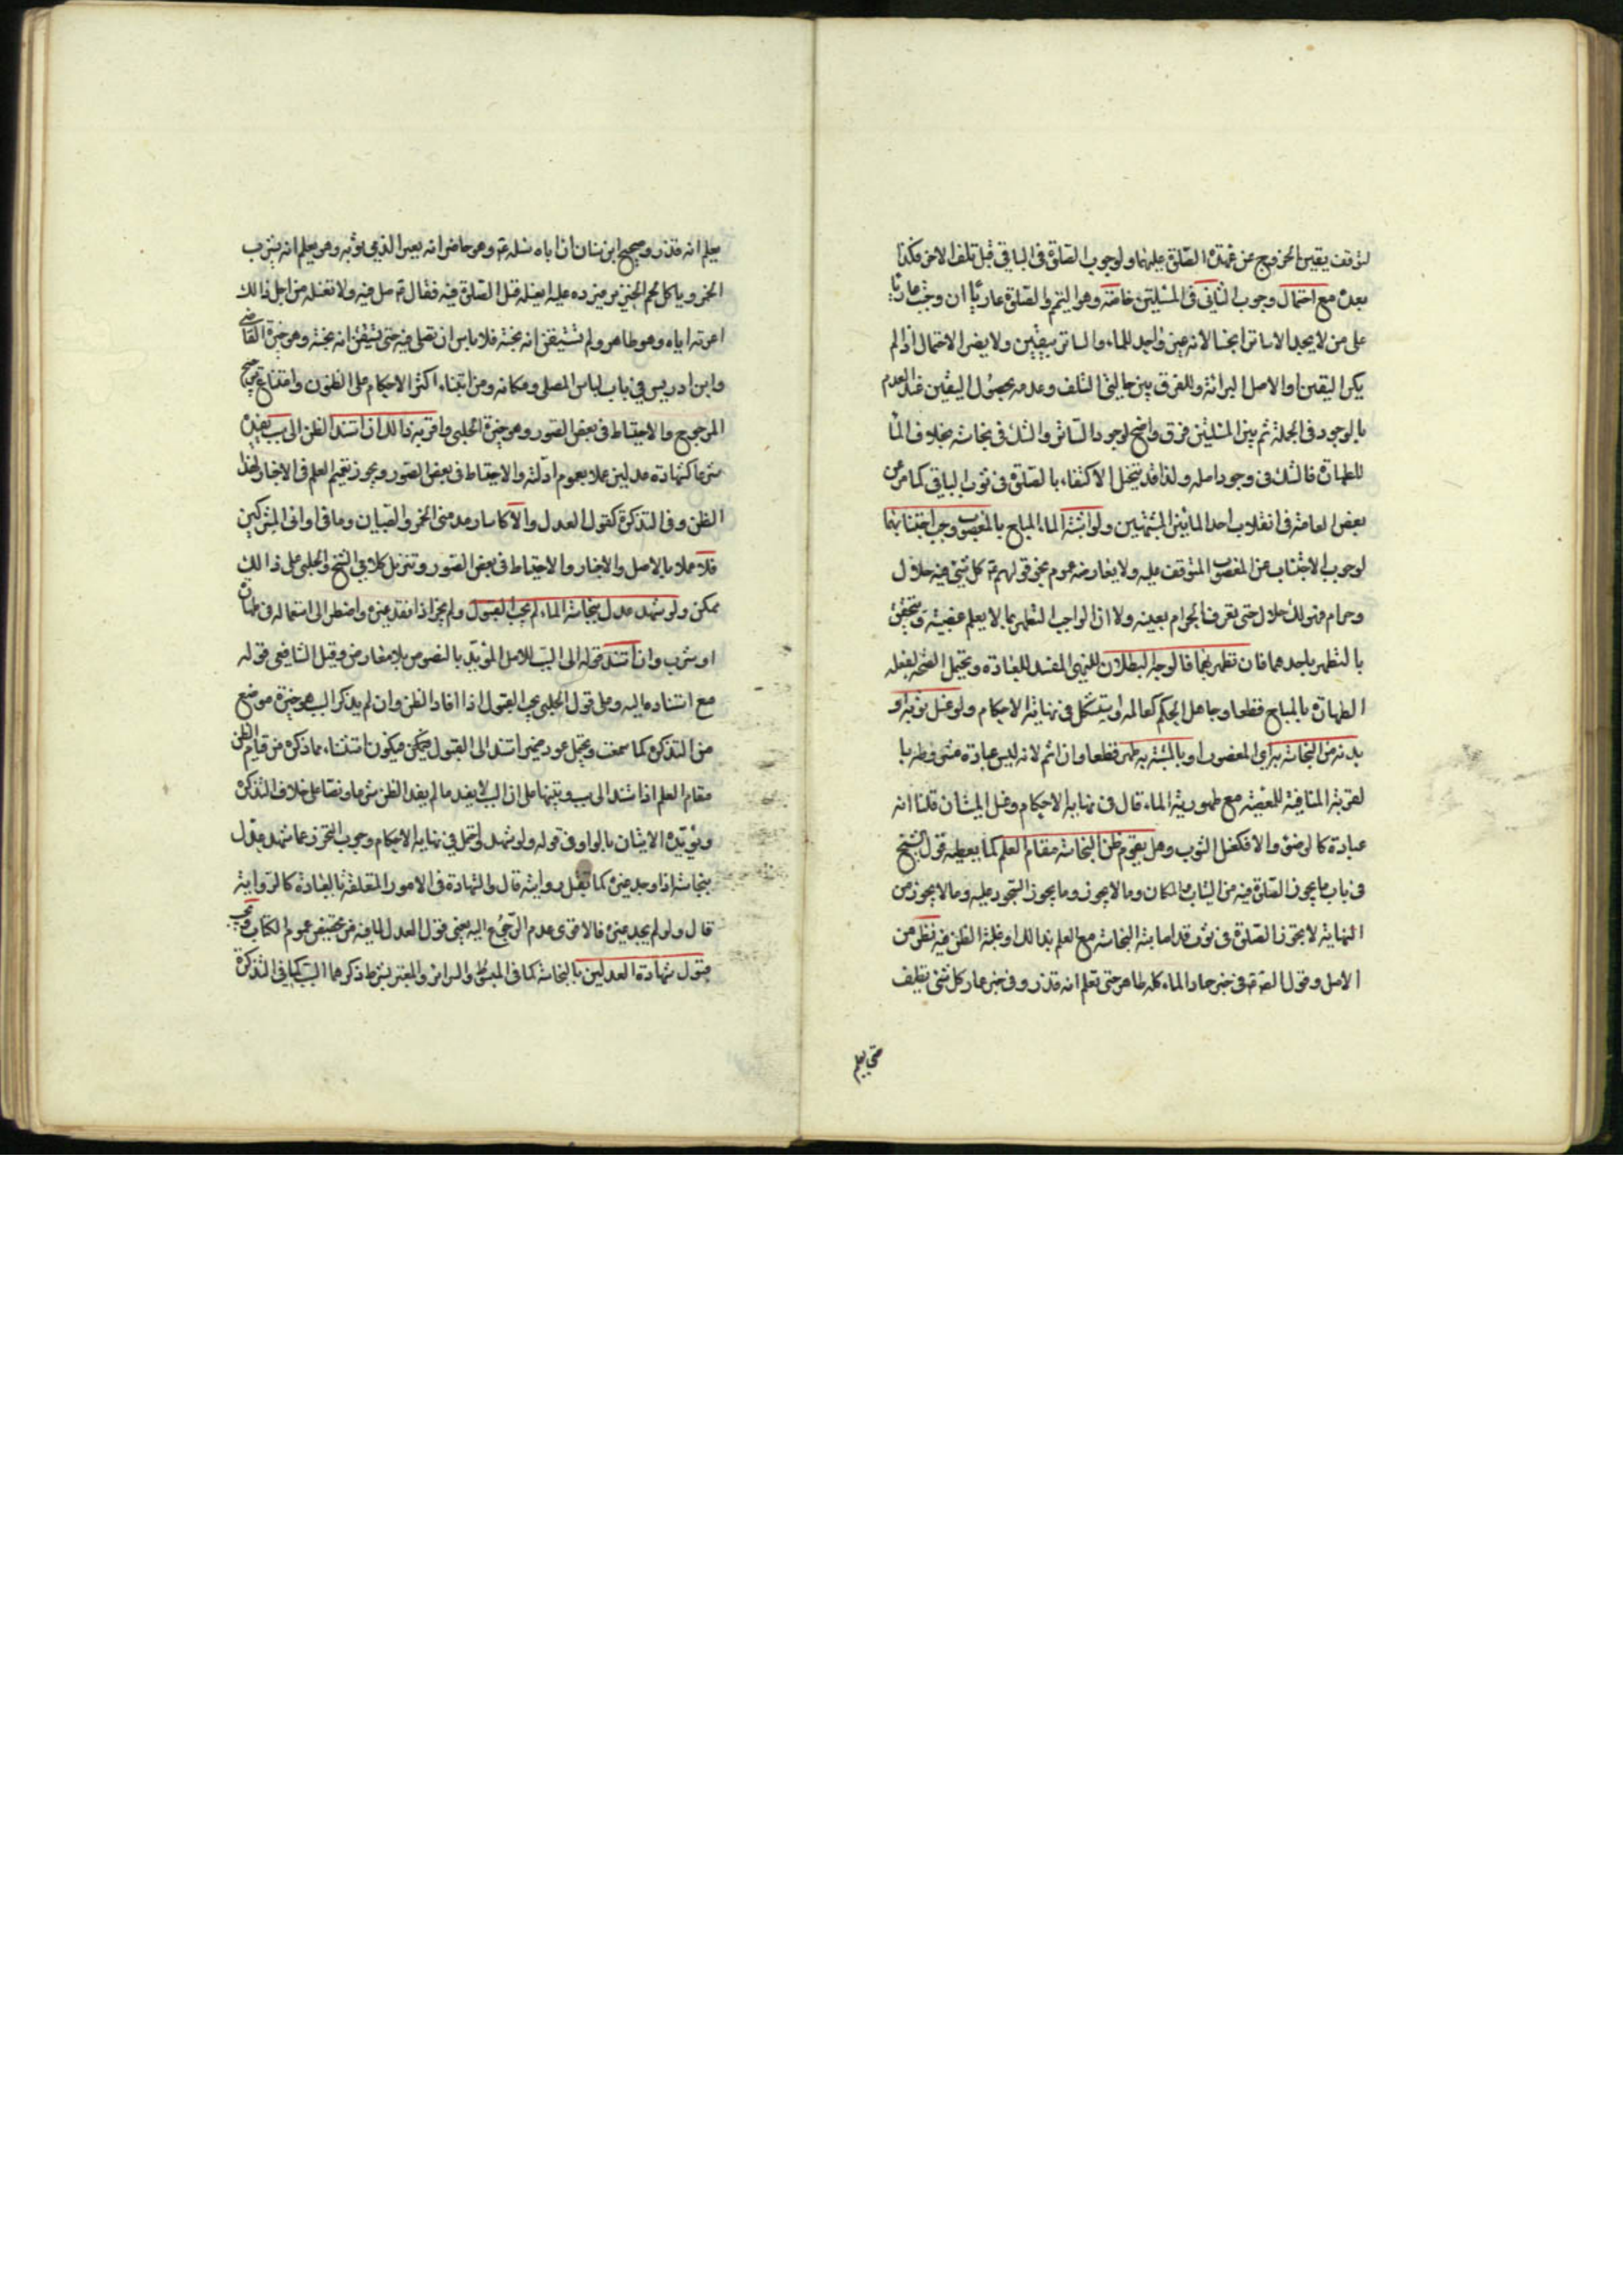 لتوقف يقين الخروج عن عهدة الصلوة عليهما ولوجوب الصلوة فى الباقى قبل تلف الاخر فكذا
بعده مع احتمال وجوب الثانى فى المسئلتين خاصة وهو التيمم والصلوة عاريا ان وجبت عاريا
على من لا يجد الا ساترا نجسا لانه غير واجد للماء والساتر بيقين ولا يضر الاحتمال اذا لم
يكن اليقين او الاصل البرائة وللفرق بين حالتى التلف وعدمه بحصول اليقين عند العدم
بالوجود فى الجملة ثم بين المسئلتين فرق واضح لوجود الساتر والشك فى نجاسته بخلاف الماء
للطهارة فالشك فى وجود اصله ولذا قد يتخيل الاكتفاء بالصلوة فى ثوب الباقى كما مر عن
بعض العامة فى انقلاب احد المائين المشتبهين ولو اشتبه الماء المباح بالمغصوب وجب اجتنابهما
لوجوب الاجتناب عن المغصوب المتوقف عليه ولا يعارضه عموم نحو قولهم ع كل شئ فيه حلال
وحرام فهو لك حلال حتى تعرف الحرام بعينه ولا ان الواجب التطهر بما لا يعلم غصبيته ويتحقق
بالتطهر باحدهما فان تطهر بهما فالوجه البطلان للنهى المفسد للعبادة ويحتمل الصحة لفعله
الطهارة بالمباح قطعا وجاهل الحكم كعالمه واستشكل فى نهاية الاحكام ولو غسل ثوبه او
بدنه من النجاسة باى المغصوب او بالمشتبه به طهر قطعا وان اثم لانه ليس عبادة مشروطة با
لقربة المنافية للغصبه مع طهورية الماء قال فى نهاية الاحكام وغسل الميت ان قلنا انه
عبادة كالوضوء والا فكغسل الثوب وهل يقوم ظن النجاسة مقام العلم كما يعطيه قول الشيخ
فى باب ما يجوز الصلوة فيه من الثياب والمكان وما لا يجوز وما يجوز السجود عليه وما لا يجوز من
النهاية لا يجوز الصلوة فى ثوب قد اصابته النجاسة مع العلم بذالك او غلبة الظن فيه نظر من
الاصل وقول الصادق ع فى خبر حماد الماء كله طاهر حتى تعلم انه قذر وفى خبر عمار كل شئ نظيف
حتى يعلم
يعلم انه قذر وصحيح ابن سنان ان اباه سئله ع وهو حاضر انه يعير الذمى ثوبه وهو يعلم انه يشرب
الخمر وياكل لحم الخنزير فيرده عليه ايغسله قبل الصلوة فيه فقال ع صل فيه ولا تغسله من اجل ذالك
اعرته اياه وهو طاهر ولم تستيقن انه نجسه فلا باس ان تصلى فيه حتى تستيقن انه نجسه وهو خيرة القاضى
وابن ادريس فى باب لباس المصلى ومكانه ومن ابتناء اكثر الاحكام على الظنون وامتناع ترجيح
المرجوح والاحتياط فى بعض الصور وهو خيرة الحلبى واقربه ذالك ان استند الظن الى سبب يفيده
شرعا كشهادة عدلين عملا بعموم ادلته والاحتياط فى بعض الصور ويجوز تعميم العلم فى الاخبار لهذا
الظن وفى التذكرة كقول العدل والا كاسار مدمنى الخمر والصبيان وما فى اوانى المشركين
فلا عملا بالاصل والاخبار والاحتياط فى بعض الصور وتنزيل كلامى الشيخ والحلبى على ذالك
ممكن ولو شهد عدل بنجاسة الماء لم يجب القبول ولم يجز اذا فقد غيره واضطر الى استعماله فى طهارة
او شرب وان استند قوله الى السبب للاصل المؤيد بالنصوص بلا معارض وقبل الشافعى قوله
مع استناده اليه وعلى قول الحلبى يجب القبول اذا افاد الظن وان لم يذكر السبب وهو خيرة موضع
من التذكرة كما سمعت ويحتمل عود ضمير استند الى القبول فيمكن فيكون استثناء مما ذكره من قيام الظن
مقام العلم اذا استند الى سبب وتنبيها على ان السبب لا يفيد ما لم يفد الظن شرعا ونصا على خلاف التذكرة
ويؤيده الاتيان بالواو فى قوله ولو شهد واحتمل فى نهاية الاحكام وجوب التحرز عما شهد عدل
بنجاسته اذا وجد غيره كما تقبل روايته قال والشهادة فى الامور المتعلقة بالعبادة كالرواية
قال ولو لم يجد غيره فالاقوى عدم الرجوع اليه يعنى قول العدل لما فيه من تخصيص عموم الكتاب ويجب
قبول شهادة العدلين بالنجاسة كما فى المبسوط والسرائر والمعتبر بشرط ذكرهما السبب كما فى التذكرة